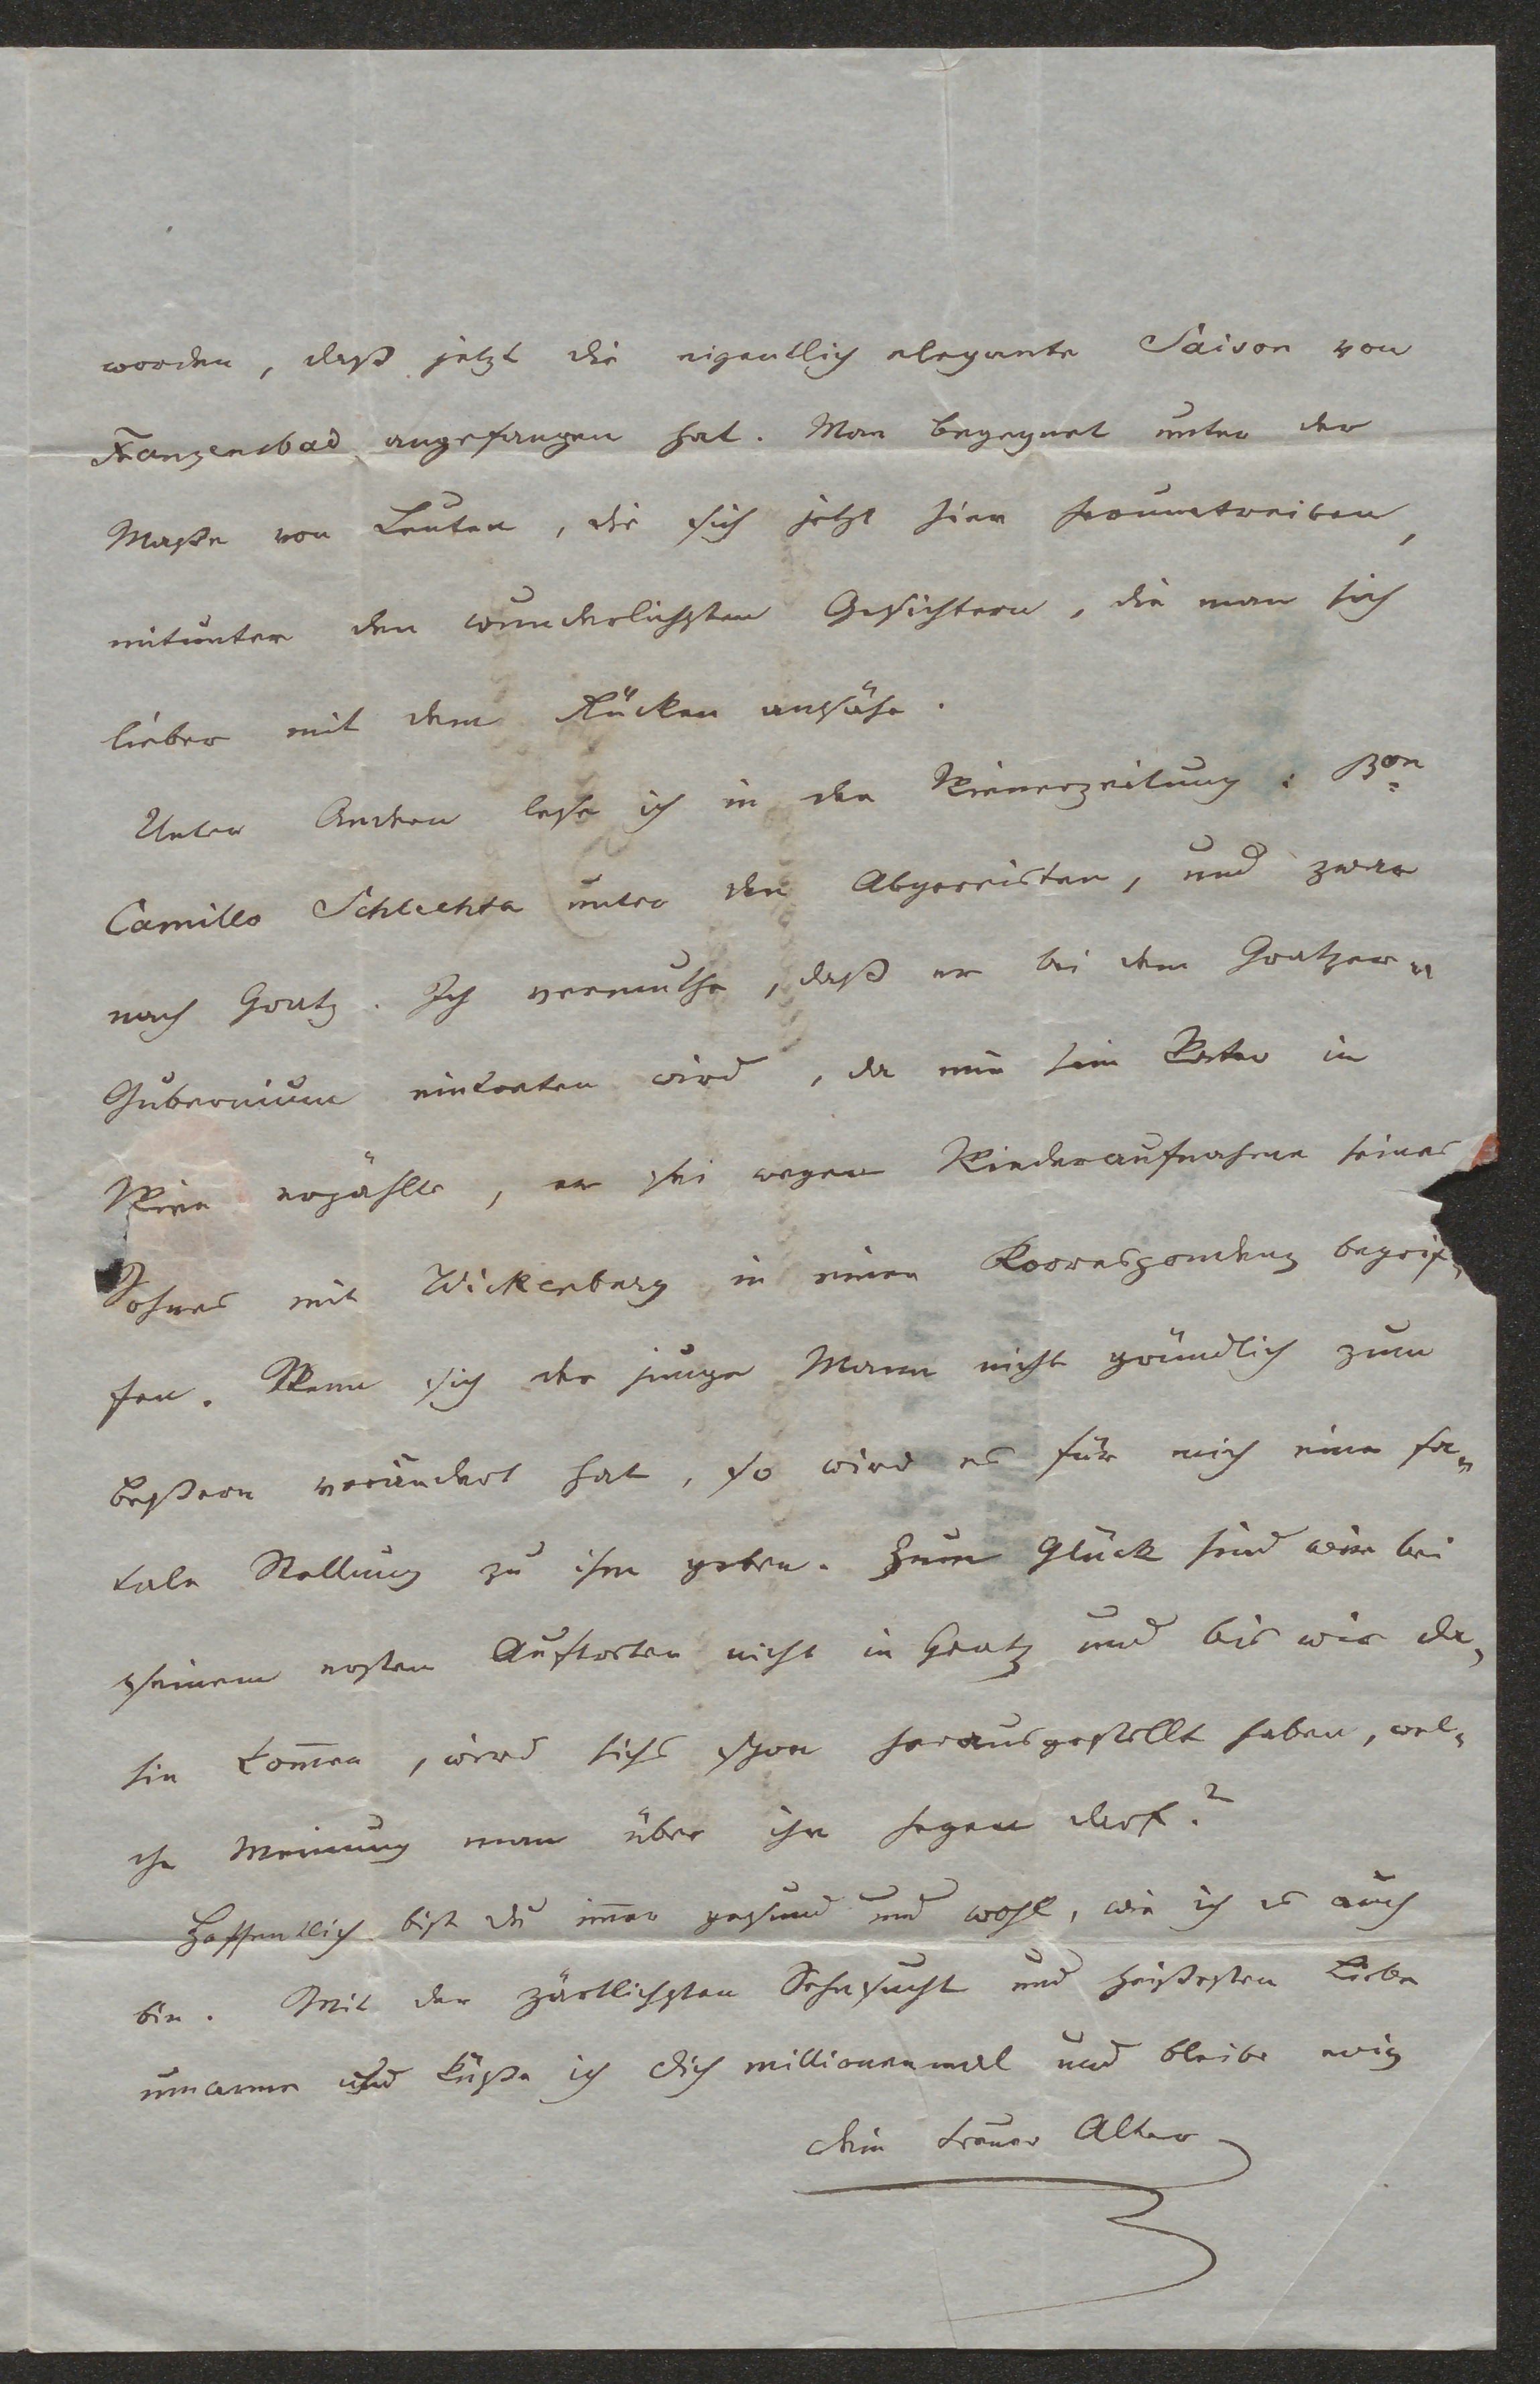 worden, daß jetzt die eigentlich elegante Saison von
Franzensbad angefangen hat. Man begegnet unter der
Maße von Leuten, die sich jetzt hier herumtreiben,
mitunter den wunderlichsten Gesichtern, die man sich
lieber mit dem Rücken ansähe.
Unter Andern lese ich in der Wienerzeitung: Bon
Camillo Schlechta unter den Abgereisten, und zwar
nach Gratz. Ich vermuthe, daß er bei dem Gratzer-
Gubernium eintreten wird, da mir sein Vater in
Wien erzählte, er sei wegen Wiederaufnahme seines
Sohnes mit Wickenburg in einer Korrespondenz begrif-
fen. Wenn sich der junge Mann nicht gründlich zum
beßern verändert hat, so wird es für mich eine fa-
tale Stellung zu ihm geben. Zum Glück sind wir bei
seinem ersten Auftreten nicht in Gratz und bis wir da-
hin kom̄en, wird sichs schon herausgestellt haben, wel-
che Meinung man über ihn hegen darf?
Hoffentlich bist du im̄er gesund und wohl, wie ich es auch
bin. Mit der zärtlichsten Sehnsucht und heißesten Liebe
umarme und küße ich dich millionenmal und bleibe ewig
dein treuer Alter